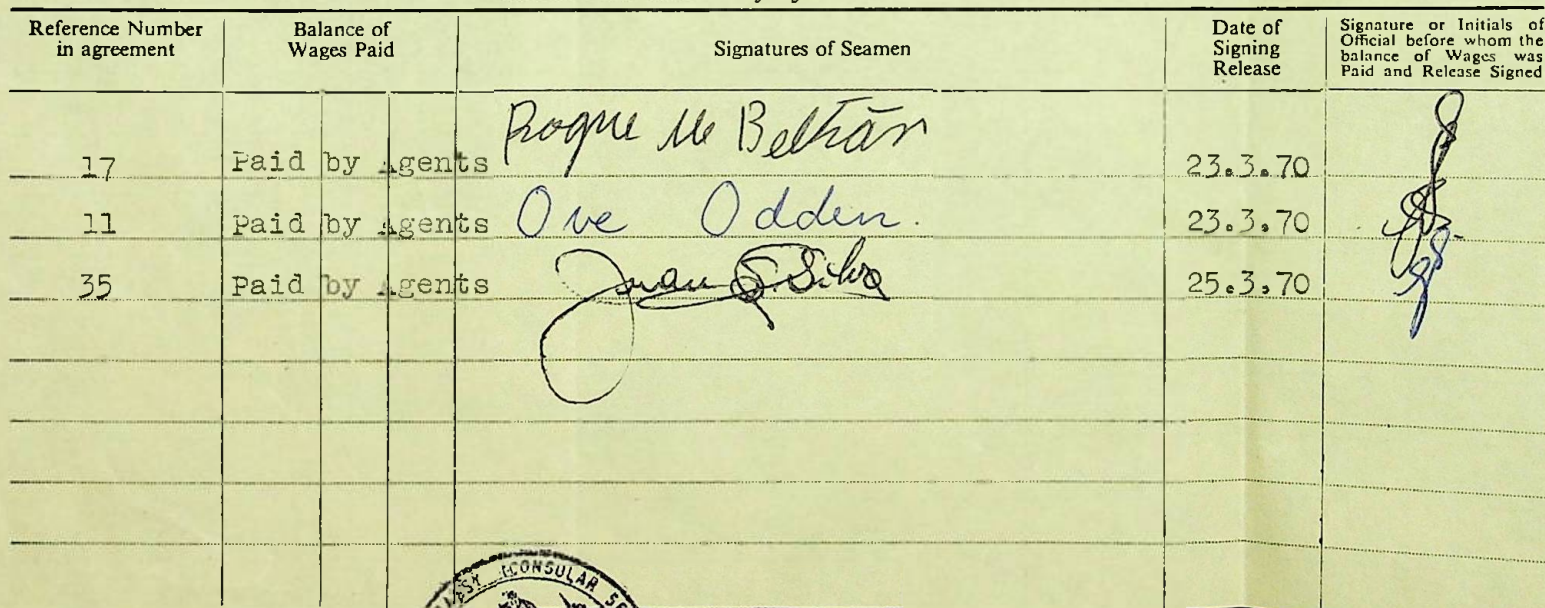 Reference Number in agreement
Balance of Wages Paid
Signatures of Seamen
Date of Signing Release
Signature or Initials of Official before whom the balance of Wages was Paid and Release Signed
17 Paid by Agents Roque M Beltrán 23.3.70
11 Paid by Agents Ove Odden. 23.3.70
35 Paid by Agents Juan S. Silva 25.3.70
CONSULAR